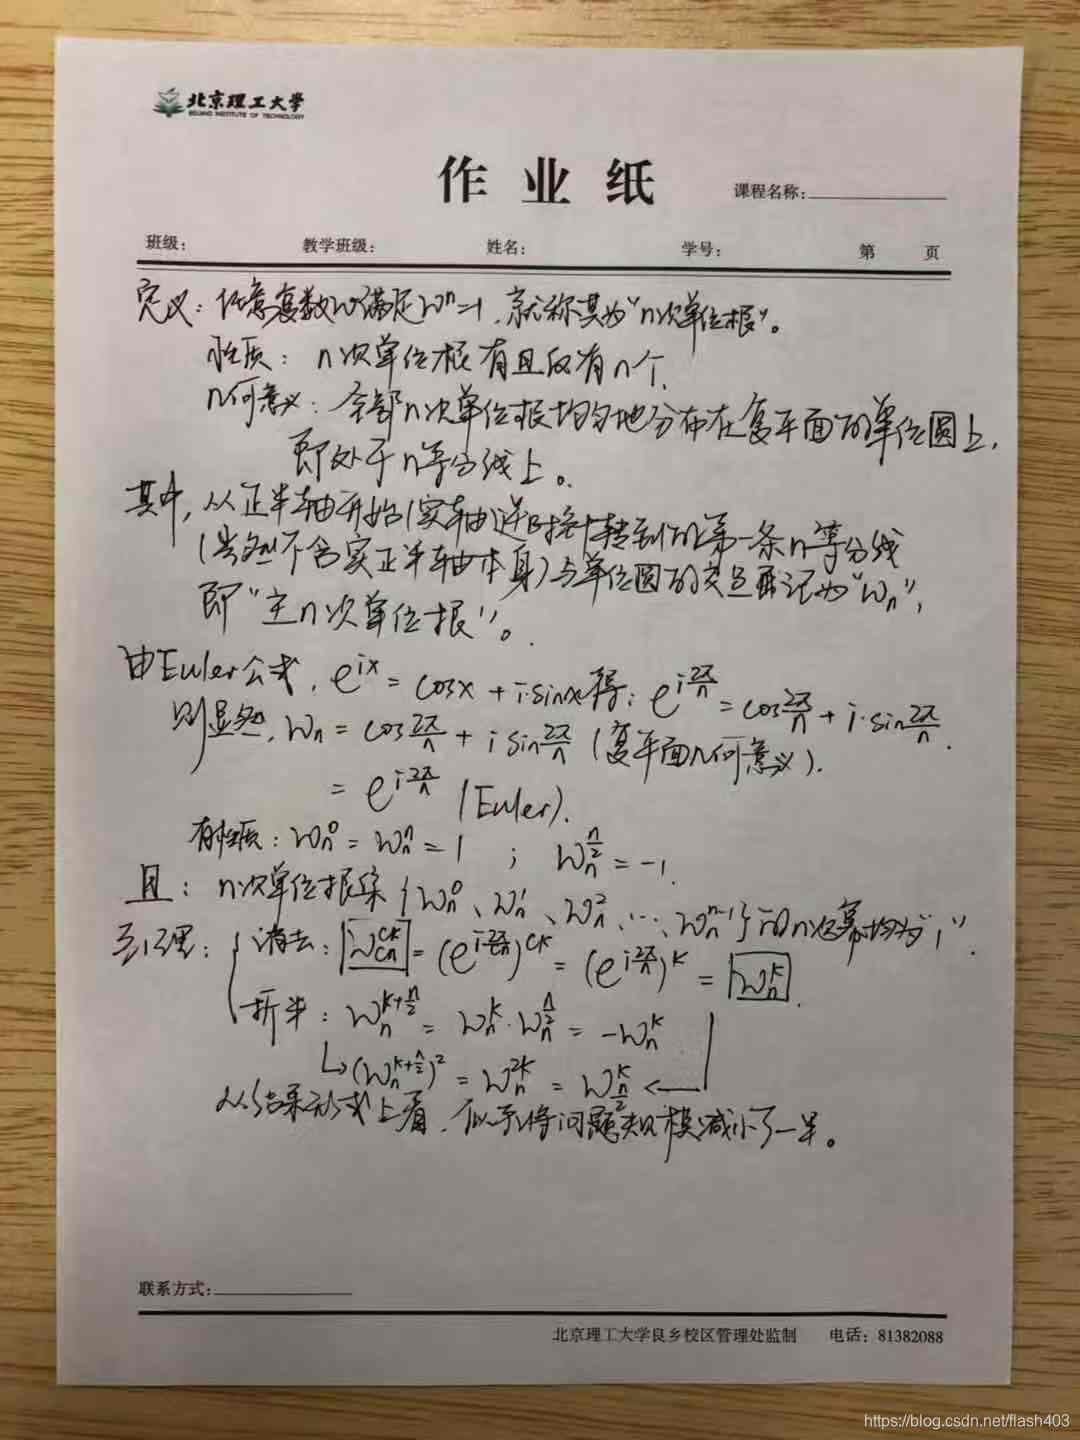 北京理工大学
BEIJING INSTITUTE OF TECHNOLOGY
作 业 纸
课程名称:
班级: 教学班级: 姓名: 学号: 第 页
定义: 任意复数w满足wⁿ=1, 就称其为"n次单位根"。
性质: n次单位根有且仅有n个.
几何意义: 全部n次单位根均匀地分布在复平面的单位圆上,
即处于n等分线上。
其中, 从正半轴开始(实轴)逆时针转到的第一条n等分线
(当然不含实正半轴本身)与单位圆的交点再记为"w_n",
即"主n次单位根"。
由Euler公式, e^{ix} = cosx + i·sinx得: e^{i\frac{2π}{n}} = cos\frac{2π}{n} + i·sin\frac{2π}{n}.
则显然, w_n = cos\frac{2π}{n} + i sin\frac{2π}{n} (复平面几何意义).
= e^{i\frac{2π}{n}} (Euler).
有性质: w_n^0 = w_n^n = 1 ; w_n^{\frac{n}{2}} = -1.
且: n次单位根集{w_n^0、w_n^1、w_n^2、…、w_n^{n-1}}的n次幂均为"1".
引理: 消去: w_{cn}^{ck} = (e^{i\frac{2π}{cn}})^{ck} = (e^{i\frac{2π}{n}})^k = w_n^k.
折半: w_n^{k+\frac{n}{2}} = w_n^k · w_n^{\frac{n}{2}} = -w_n^k
↳(w_n^{k+\frac{n}{2}})^2 = w_n^{2k} = w_{\frac{n}{2}}^k ←
从结果形式上看, 似乎将问题规模减小了一半。
联系方式:
北京理工大学良乡校区管理处监制 电话: 81382088
https://blog.csdn.net/flash403